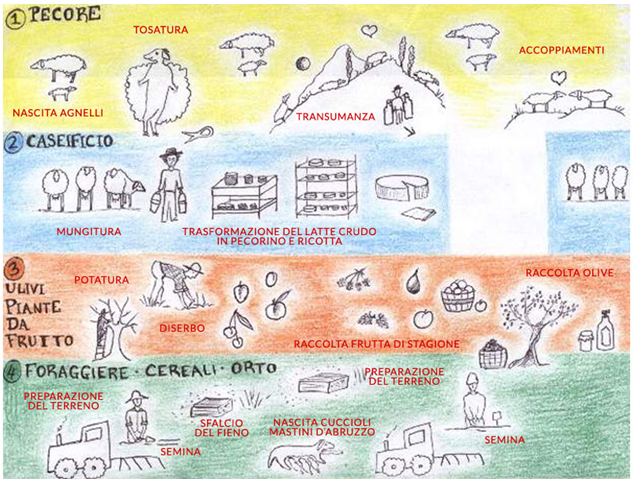 1 PECORE
TOSATURA
ACCOPPIAMENTI
NASCITA AGNELLI
TRANSUMANZA
2 CASEIFICIO
MUNGITURA
TRASFORMAZIONE DEL LATTE CRUDO
IN PECORINO E RICOTTA
3
ULIVI
PIANTE
DA
FRUTTO
POTATURA
DISERBO
RACCOLTA FRUTTA DI STAGIONE
RACCOLTA OLIVE
4 FORAGGIERE · CEREALI · ORTO
PREPARAZIONE
DEL TERRENO
SEMINA
SFALCIO
DEL FIENO
NASCITA CUCCIOLI
MASTINI D'ABRUZZO
PREPARAZIONE
DEL TERRENO
SEMINA